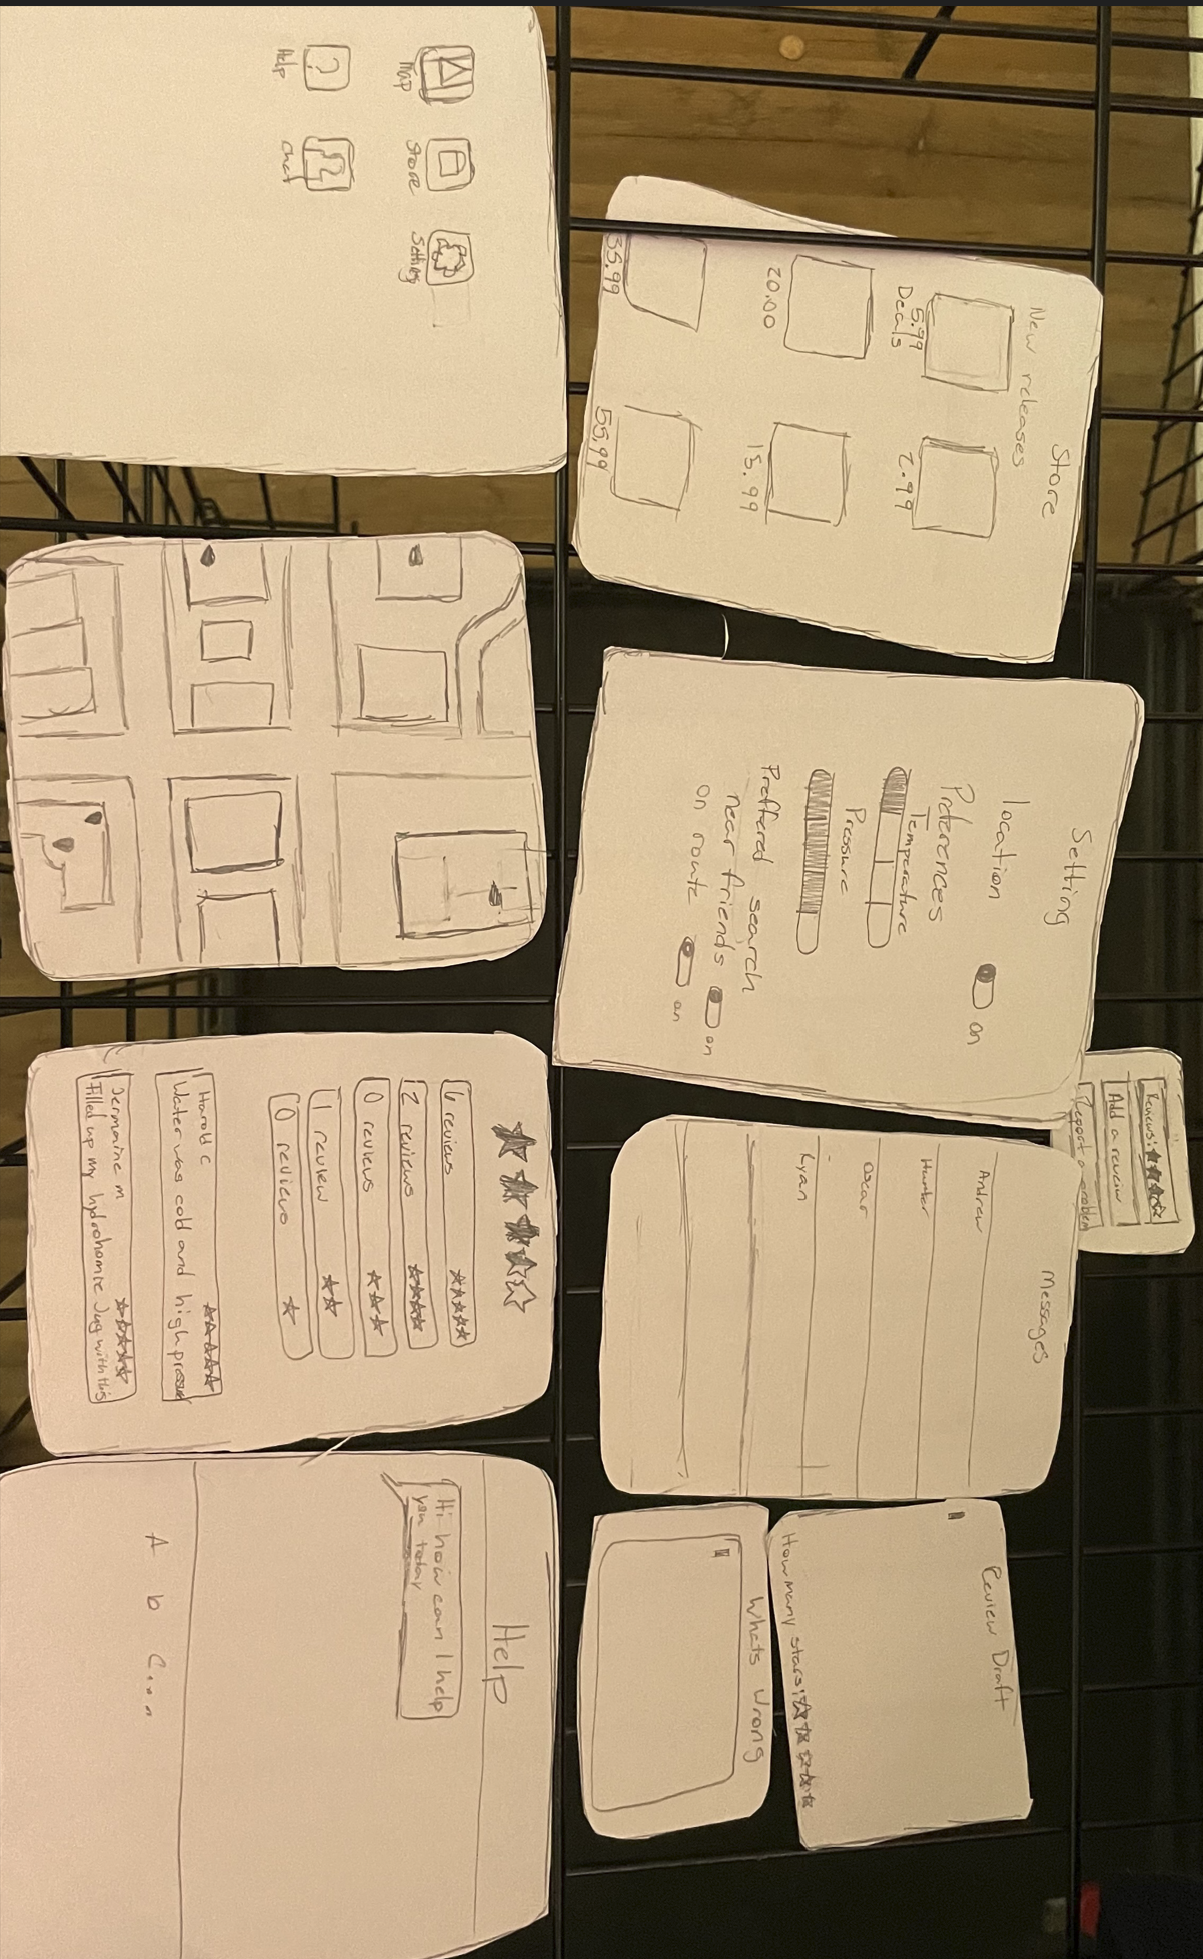 Map
Store
Setting
Help
Chat
Store
New releases
5.99
2.99
Deals
20.00
15.99
55.99
Setting
location
on
Preferences
Temperature
Pressure
Preffered search
near friends
on
on route
on
Reviews:
Add a review
Report a problem
6 reviews
2 reviews
0 reviews
1 review
0 reviews
Harold c
Water was cold and high pressure
Jermaine m
Filled up my hydrohomie Jug with this
Messages
Andrew
Hunter
Oscar
Ryan
Help
Hi how can I help
you today
A b C...
Review Draft
How many stars:
Whats wrong